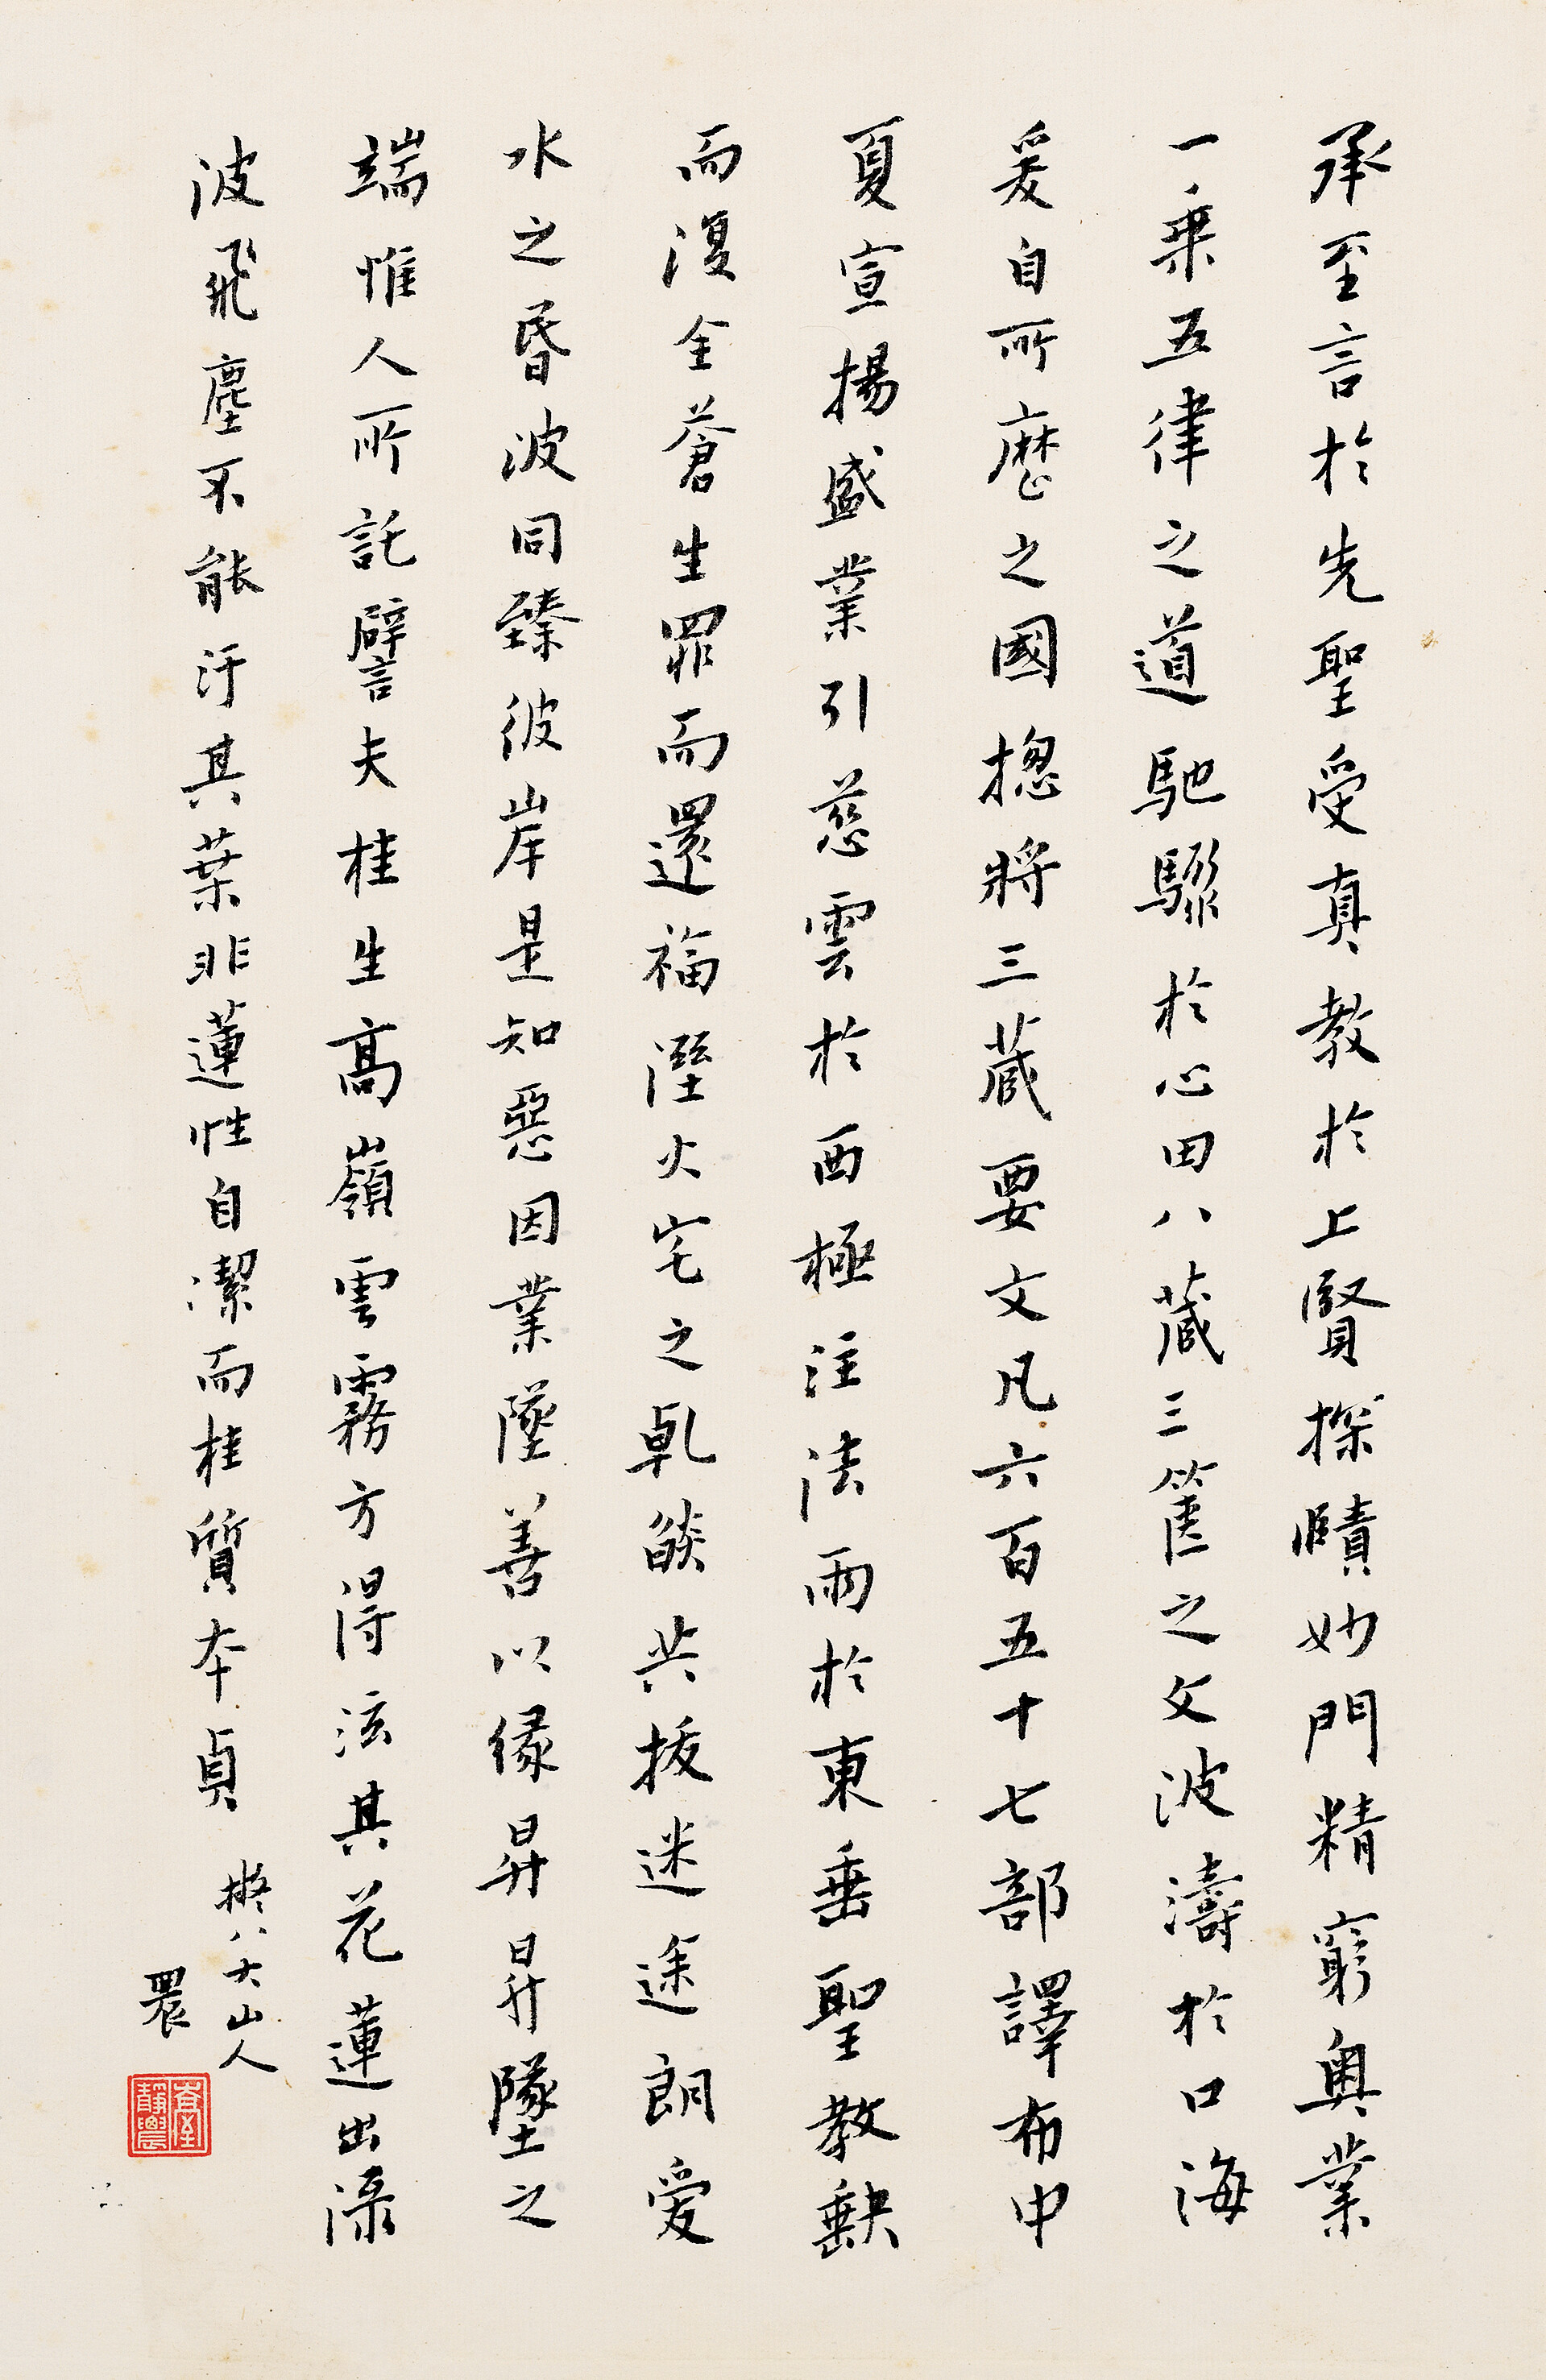 承至言於先聖受真教於上賢探賾妙門精窮奥業
一乗五律之道馳驟於心田八藏三篋之文波濤於口海
爰自所歷之國摠將三藏要文凡六百五十七部譯布中
夏宣揚盛業引慈雲於西極注法雨於東垂聖教缺
而復全蒼生罪而還福溼火宅之乹燄共拔迷途朗愛
水之昏波同臻彼岸是知惡因業墜善以緣昇昇墜之
端惟人所託譬夫桂生高嶺雲霧方得泫其花蓮出渌
波飛塵不能汙其葉非蓮性自潔而桂質本貞
擬八大山人